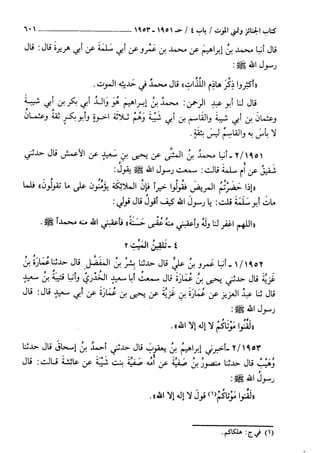 كتاب الجنائز وتمني الموت / باب ٤ / حـ ١٩٥١ - ١٩٥٣ ٦٠١
قال أنبا محمد بنُ إبراهيم عن محمد بن عَمرو عن أبي سلمة عن أبي هريرة قال: قال
رسول الله ﷺ:
«أكثروا ذِكرَ هاذم اللَّذَّات» قال محمدٌ في حديثه الموت.
قال لنا أبو عبد الرحمن: محمدُ بنُ إبراهيم هُوَ والدُ أبي بكر بن أبي شيبة
وعثمان بن أبي شيبة والقاسم بن أبي شيبة وهُم ثلاثة اخوة وأبو بكر ثقةٌ وعثمان
لا بأسَ به والقاسِمُ ليسَ بثقةٍ.
٢/١٩٥١ - أنبا محمدُ بنُ المثنّى عن يحيى بن سَعيدٍ عن الأعمش قال حدثني
شقيقٌ عن أم سلمة قالت: سمعت رسول الله ﷺ يقولُ:
«إذا حَضَرْتُم المريضَ فقُولُوا خيراً فإنَّ الملائكة يؤَمِّنُون على ما تقولُون» فلما
ماتَ أبو سَلَمَة قلت: يا رسول الله كيف أقولُ قال قولي:
«اللهم اغفر لنا ولهُ وأعقِبني منهُ عُقبى حَسَنَةً» فأعقَبني الله منه محمداً ﷺ.
٤ - تَلقِينُ المَيِّتِ ٢
١/١٩٥٢ - أنبا عَمرو بنُ عليٍّ قال حدثنا بِشرُ بنُ المفضَّل قال حدثنا عُمَارةُ بنُ
غَزِيَّة قال حدثني يحيى بنُ عُمَارَة قال سمعتُ أبا سعيد الخُدْرِيّ وأنبا قتيبةُ بنُ سعيدٍ
قال ثنا عبدُ العزيز عن عُمَارَة بنِ غَزِيَّة عن يحيى بن عُمَارَة عن أبي سعيد قال: قال
رسول الله ﷺ:
«لَقِّنُوا مَوْتَاكُمْ لا إله إلا الله».
٢/١٩٥٣ - أخبرني إبراهيمُ بنُ يعقوبَ قال حدثني أحمدُ بنُ إسحاقَ قال حدثنا
وُهَيْبٌ قال حدثنا منصورُ بنُ صَفِيَّةَ عن أُمه صَفِيَّة بنت شَيْبَةَ عن عائشةَ قالت: قال
رسول الله ﷺ:
«لَقِّنُوا مَوْتَاكُمْ(١) قولَ لا إله إلا الله».
(١) في ج: هلكاكم.